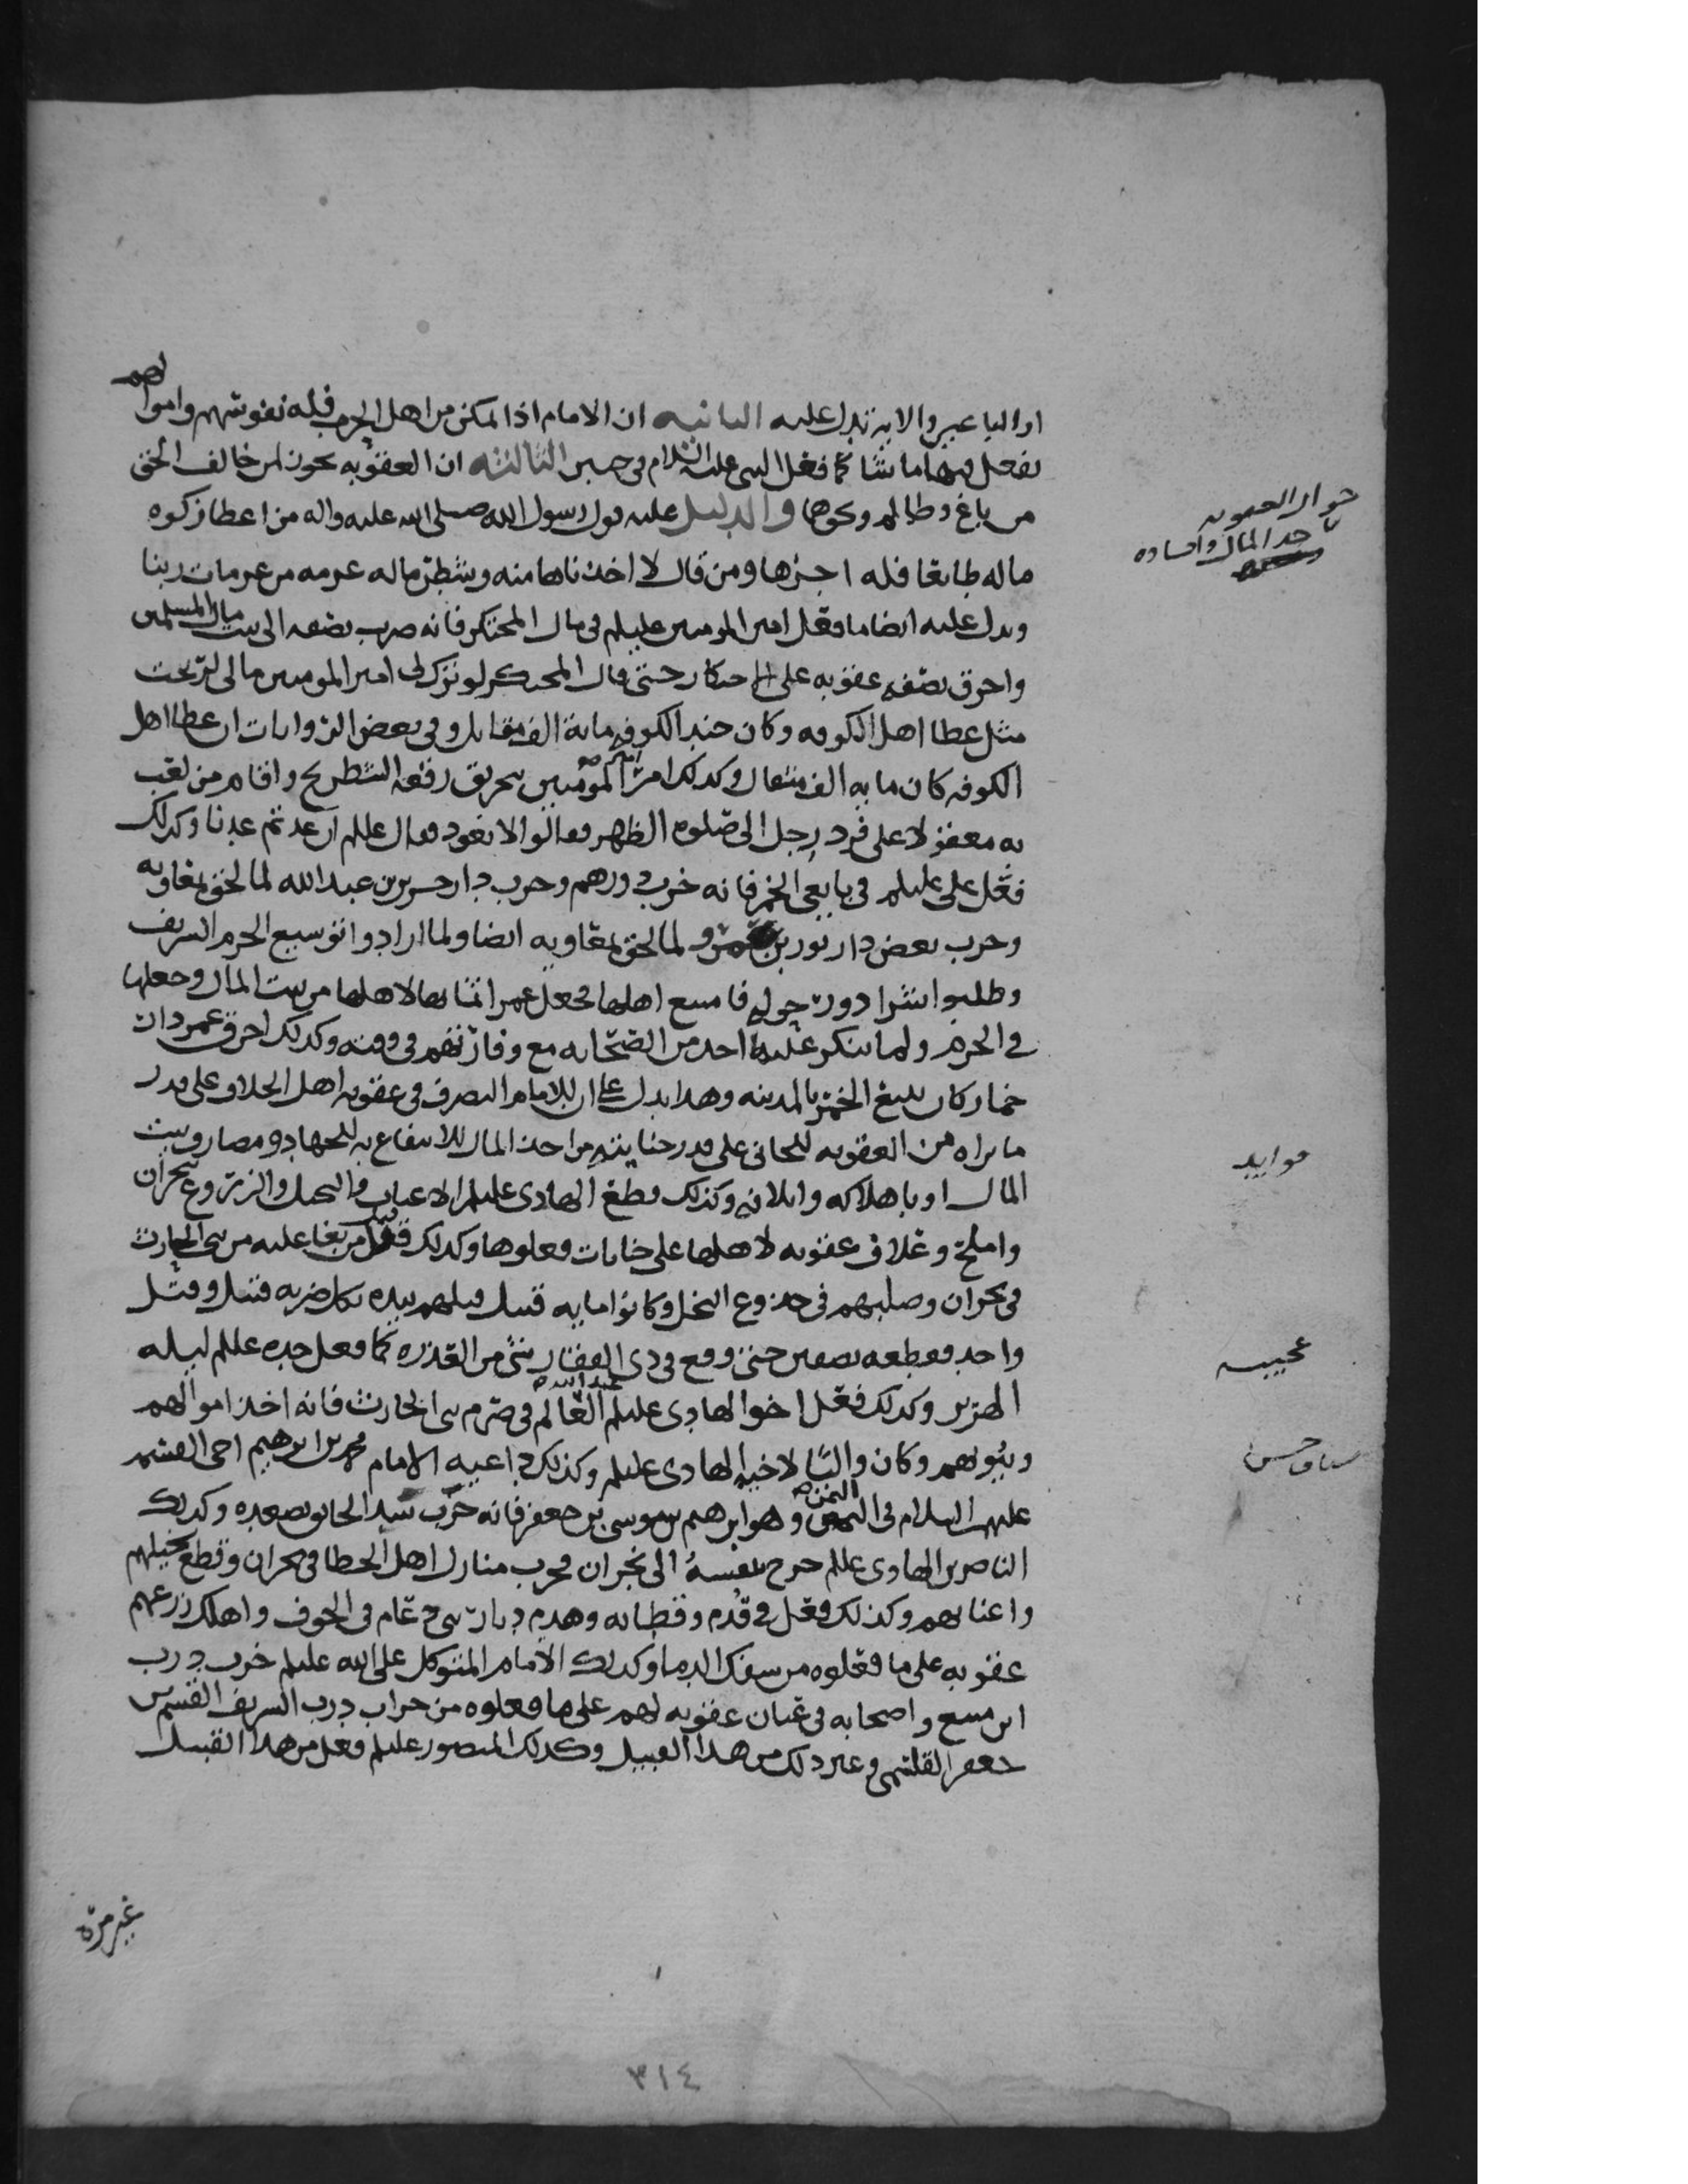 او الباعين والايه تدل عليه الثانيه ان الامام اذا تمكن من اهل الحرب فله نفوسهم واموالهم
يفعل فيها ما شا كما فعل النبي عليه السلام في حنين الثالثه ان العقوبه تجوز لمن خالف الحق
من باغ وظالم ونحوها والدليل عليه قول رسول الله صلى الله عليه واله من اعطا زكوه
ماله طايعا فله اجرها ومن قال لا اخذناها منه وشطر ماله عزمه من عزمات ربنا
ويدل عليه ايضا ما فعل امير المومنين عليلم في مال المحتكر فانه صرب نصفه الى بيت مال المسلمين
واحرق نصفه عقوبه على الاحتكار حتى قال المحتكر لو ترك لي امير المومنين مالي لربحت
مثل عطا اهل الكوفه وكان جند الكوفه ماية الف مقاتل وفي بعض الروايات ان عطا اهل
الكوفه كان مايه الف مثقال وكذلك امر امير المومنين بتحريق رقعه الشطرنج واقام من لعب
به معقولا على فرد رجل الى صلوه الظهر فقالوا لا نعود فقال عليلم ان عدتم عدنا وكذلك
فعل علي عليلم في بايعي الخمر فانه خرب دورهم وخرب دار جرير بن عبد الله لما لحق بمعاويه
وخرب بعض دار ثور بن عمرو لما لحق بمعاويه ايضا ولما ارادوا توسيع الحرم الشريف
وطلبوا شرا دور حوله فامتنع اهلها فجعل عمر اثمانها لاهلها من بيت المال وجعلها
في الحرم ولم ينكر عليه احد من الصحابه مع وفارتهم في وقته وكذلك احرق عمر دار
خمار كان يبيع الخمر بالمدينه وهذا يدل على ان للامام التصرف في عقوبه اهل الخلاف على قدر
ما يراه من العقوبه للجاني على قدر جنايته من اخذ المال للانتفاع به للجهاد ومصارف بيت
المال او باهلاكه واتلافه وكذلك قطع الهادي عليلم الاعناب والنخل والزروع بنجران
واملح وغلاف عقوبه لاهلها على خيانات فعلوها وكذلك قتل من بغا عليه من بني الحارث
في نجران وصلبهم في جذوع النخل وكانوا مايه قتيل قتلهم بيده بكل ضربه قتيل وقتل
واحد فقطعه نصفين حتى وقع في ذي الفقار شي من القذره كما فعل جده عليلم ليله
الهرير وكذلك فعل اخو الهادي عليلم عبد الله العالم في صرم بني الحارث فانه اخذ اموالهم
وبيوتهم وكان واليا لاخيه الهادي عليلم وكذلك داعيه الامام محمد بن ابرهيم اخي القسم
عليهما السلام في اليمن وهو ابرهيم بن موسى بن جعفر فانه خرب سد الخانق بصعده وكذلك
الناصر بن الهادي عليلم خرج بنفسه الى نجران فخرب منازل اهل الخطا في نجران وقطع نخيلهم
واعنابهم وكذلك فعل في قدم وقطابه وهدم ديار بني دعام في الجوف واهلك زرعهم
عقوبه على ما فعلوه من سفك الدما وكذلك الامام المتوكل على الله عليلم خرب درب
ابن مسع واصحابه في غيان عقوبه لهم على ما فعلوه من خراب درب الشريف القسم بن
جعفر القاسمي وغير ذلك من هذا القبيل وكذلك المنصور عليلم فعل من هذا القبيل
جواز العقوبه
باخذ المال وافساده
فوايد
عجيبه
سياق حسن
غير مره
٣١٤